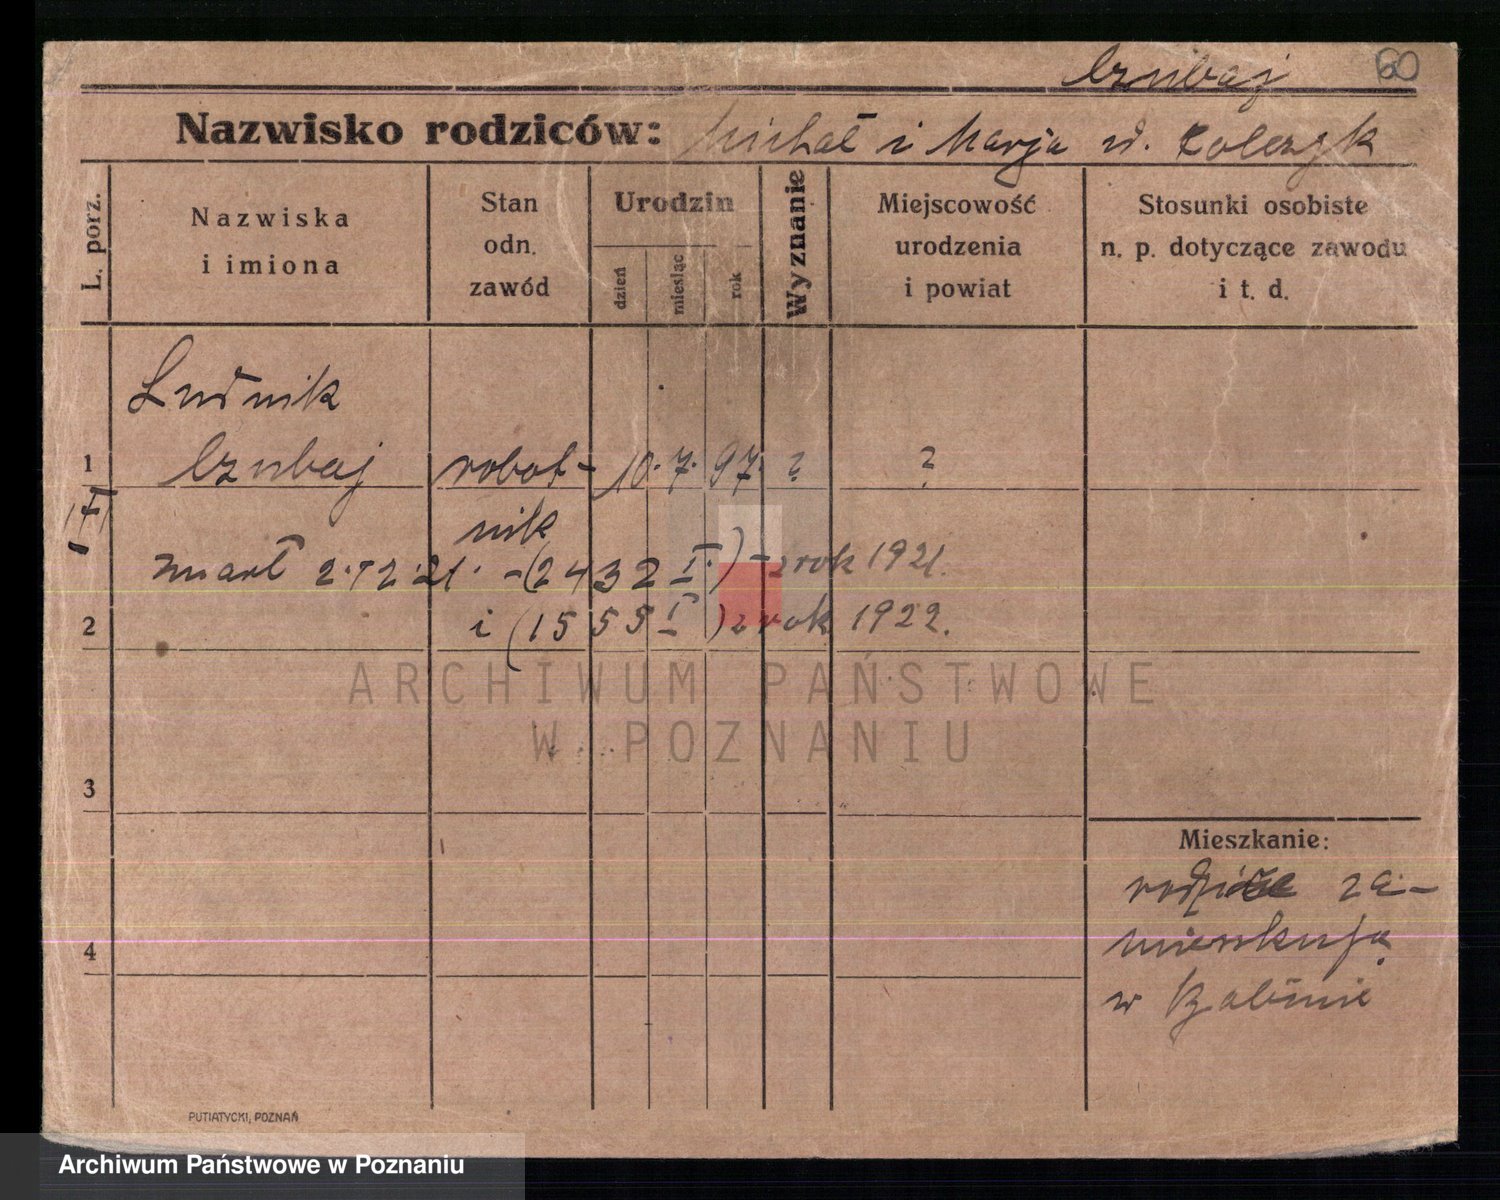 Czubaj 60
Nazwisko rodziców: Michał i Marja
L. porz.
Nazwiska
i imiona
Stan
odn.
zawód
Urodzin
dzień
miesiąc
rok
Wyznanie
Miejscowość
urodzenia
i powiat
Stosunki osobiste
n. p. dotyczące zawodu
i t. d.
Ludwik
1 Czubaj robot- 10. 7. 97. ? ?
nik
zmarł 2.12.21. -(2432 I.) - z rok 1921.
2 i (1555 I) z rok 1922.
3
4
Mieszkanie:
rodzice za-
mieszkują
w
PUTIATYCKI, POZNAŃ
ARCHIWUM PAŃSTWOWE
W POZNANIU
Archiwum Państwowe w Poznaniu